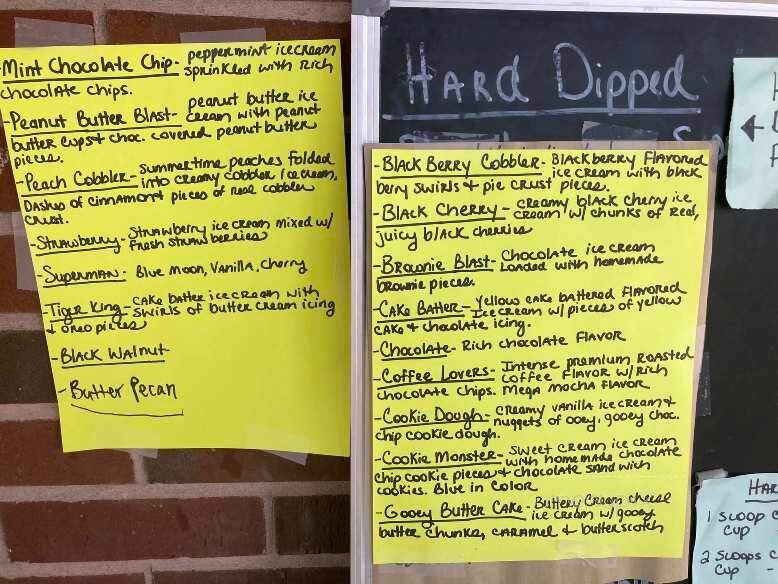 -Mint Chocolate Chip- peppermint icecream
sprinkled with rich
chocolate chips.
-Peanut Butter Blast- peanut butter ice
cream with peanut
butter cups + choc. covered peanut butter
pieces.
-Peach Cobbler- Summertime peaches folded
into creamy cobbler ice cream,
Dashes of cinnamon + pieces of real cobbler
crust.
-Strawberry- Strawberry ice cream mixed w/
fresh strawberries
-Superman- Blue Moon, Vanilla, Cherry
-Tiger King- Cake batter ice cream with
swirls of butter cream icing
+ oreo pieces
-Black Walnut
-Butter Pecan
Hard Dipped
-Black Berry Cobbler- Blackberry Flavored
ice cream with black
berry swirls + pie crust pieces.
-Black Cherry- Creamy black cherry ice
cream w/ chunks of real,
juicy black cherries
-Brownie Blast- Chocolate ice cream
Loaded with homemade
brownie pieces.
-Cake Batter- Yellow cake battered flavored
Ice cream w/ pieces of yellow
cake + chocolate icing.
-Chocolate- Rich chocolate Flavor
-Coffee Lovers- Intense premium roasted
coffee Flavor w/ rich
chocolate chips. Mega mocha flavor
-Cookie Dough- Creamy vanilla ice cream +
nuggets of ooey, gooey choc.
chip cookie dough.
-Cookie Monster- Sweet cream ice cream
with homemade chocolate
chip cookie pieces + chocolate sandwich
cookies. Blue in Color
-Gooey Butter Cake- Buttery Cream cheese
ice cream w/ gooey
butter chunks, caramel + butterscotch
1 Scoop
Cup
2 Scoops
Cup -